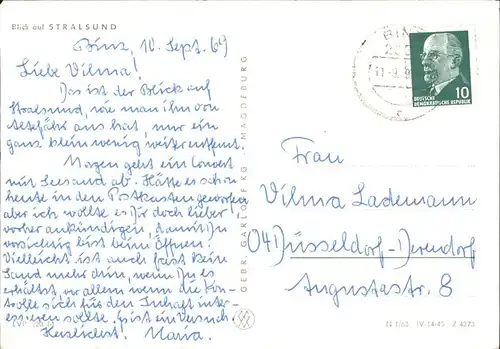 Blick auf STRALSUND
Binz, 10. Sept. 69
Liebe Vilma!
Das ist der Blick auf
Stralsund, wie man ihn von
Altefähr aus hat, nur ein
ganz klein wenig weiter entfernt.
Morgen geht ein Couvert
mit Seesand ab. Hätte es schon
heute in den Postkasten geworfen
aber ich wollte es Dir doch lieber
vorher ankündigen, damit Du
vorsichtig bist beim Öffnen!
Vielleicht ist auch fast kein
Sand mehr drin, wenn Du es
erhältst, vor allem wenn die Kon-
trolle sich für den Inhalt inter-
essieren sollte. Es ist ein Versuch.
Herzlichst! Maria.
GEBR. GARLOFF KG · MAGDEBURG
DEUTSCHE
DEMOKRATISCHE REPUBLIK
10
Frau
Vilma Lademann
(041) Düsseldorf-Derendorf
Augustastr. 8
IV-14-45 Z 4273